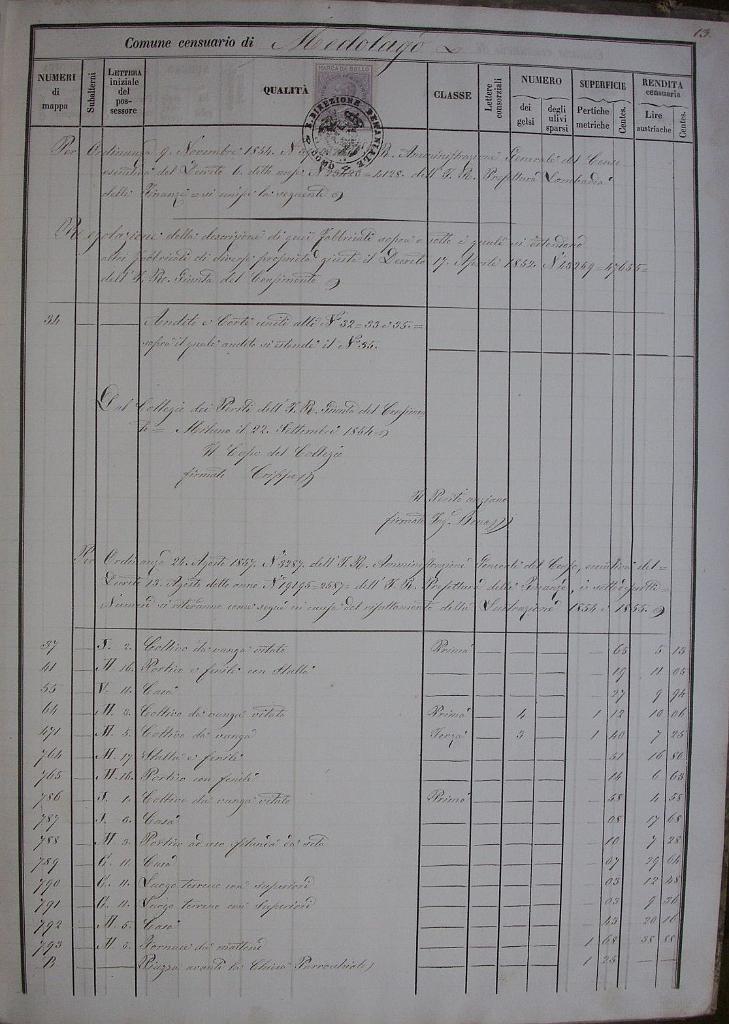 13.
Comune censuario di Medolago
NUMERI di mappa | Subalterni | LETTERA iniziale del possessore | QUALITÀ | CLASSE | Lettere consorziali | NUMERO dei gelsi | degli ulivi sparsi | SUPERFICIE Pertiche metriche | Centes. | RENDITA censuaria Lire austriache | Centes.
MARCA DA BOLLO
Per Ordinanza 9. Novembre 1854. N. R. Amministrazione Generale del Censo
esecutiva del Decreto 6. detto mese N. =4128. dell'I. R. Prefettura Lombarda
delle Finanze = si unisce la seguente
Regolazione della descrizione di quei fabbricati sopra o sotto i quali si estendono
altri fabbricati di diversa proprietà giusta il Decreto 17. Aprile 1852. N.
dell'I. R. Giunta del Censimento
34 — — Andito e Corte uniti alli N. 32=33 e 35. =
sopra il quale andito si estende il N. 35.
Dal Collegio dei Periti dell'I. R. Giunta del Censimen
to = Milano il 22. Settembre 1854
Il Capo del Collegio
firmato Crippa
Il Perito anziano
firmato Ing.
Per Ordinanza 24. Agosto 1857. N. 3287. dell'I. R. Amministrazione Generale del Censo, esecutiva del
Decreto 13. Agosto detto anno N. dell'I. R. Prefettura delle Finanze, i sottoesposti
Numeri si riterranno come segue in causa del
37 — 2. Coltivo da vanga vitato Prima — — — — 65 5 13
41 — M. 16. Portico e fenile con stalla — — — — — 19 11 05
55 — V. 11. Casa — — — — — 27 9 94
64 — M. 3. Coltivo da vanga vitato Prima — 4 — 1 12 10 06
471 — M. 5. Coltivo da vanga Terza — 3 — 1 40 7 25
764 — M. 17. Stalla e fenile — — — — — 31 16 80
765 — M. 16. Portico con fenile — — — — — 14 6 63
786 — 1. Coltivo da vanga vitato Prima — — — — 58 4 58
787 — Casa — — — — — 08 17 68
788 — M. 3. Portico ad uso filanda da seta — — — — — 10 7 28
789 — 11. Casa — — — — — 07 29 64
790 — 11. Luogo terreno con superiori — — — — — 03 12 48
791 — 11. Luogo terreno con superiori — — — — — 03 9 36
792 — M. 5. Casa — — — — — 43 20 16
793 — M. 5. Fornace da mattoni — — — — 1 68 38 88
B — — Piazza avanti la Chiesa Parrocchiale — — — — 1 25 — —